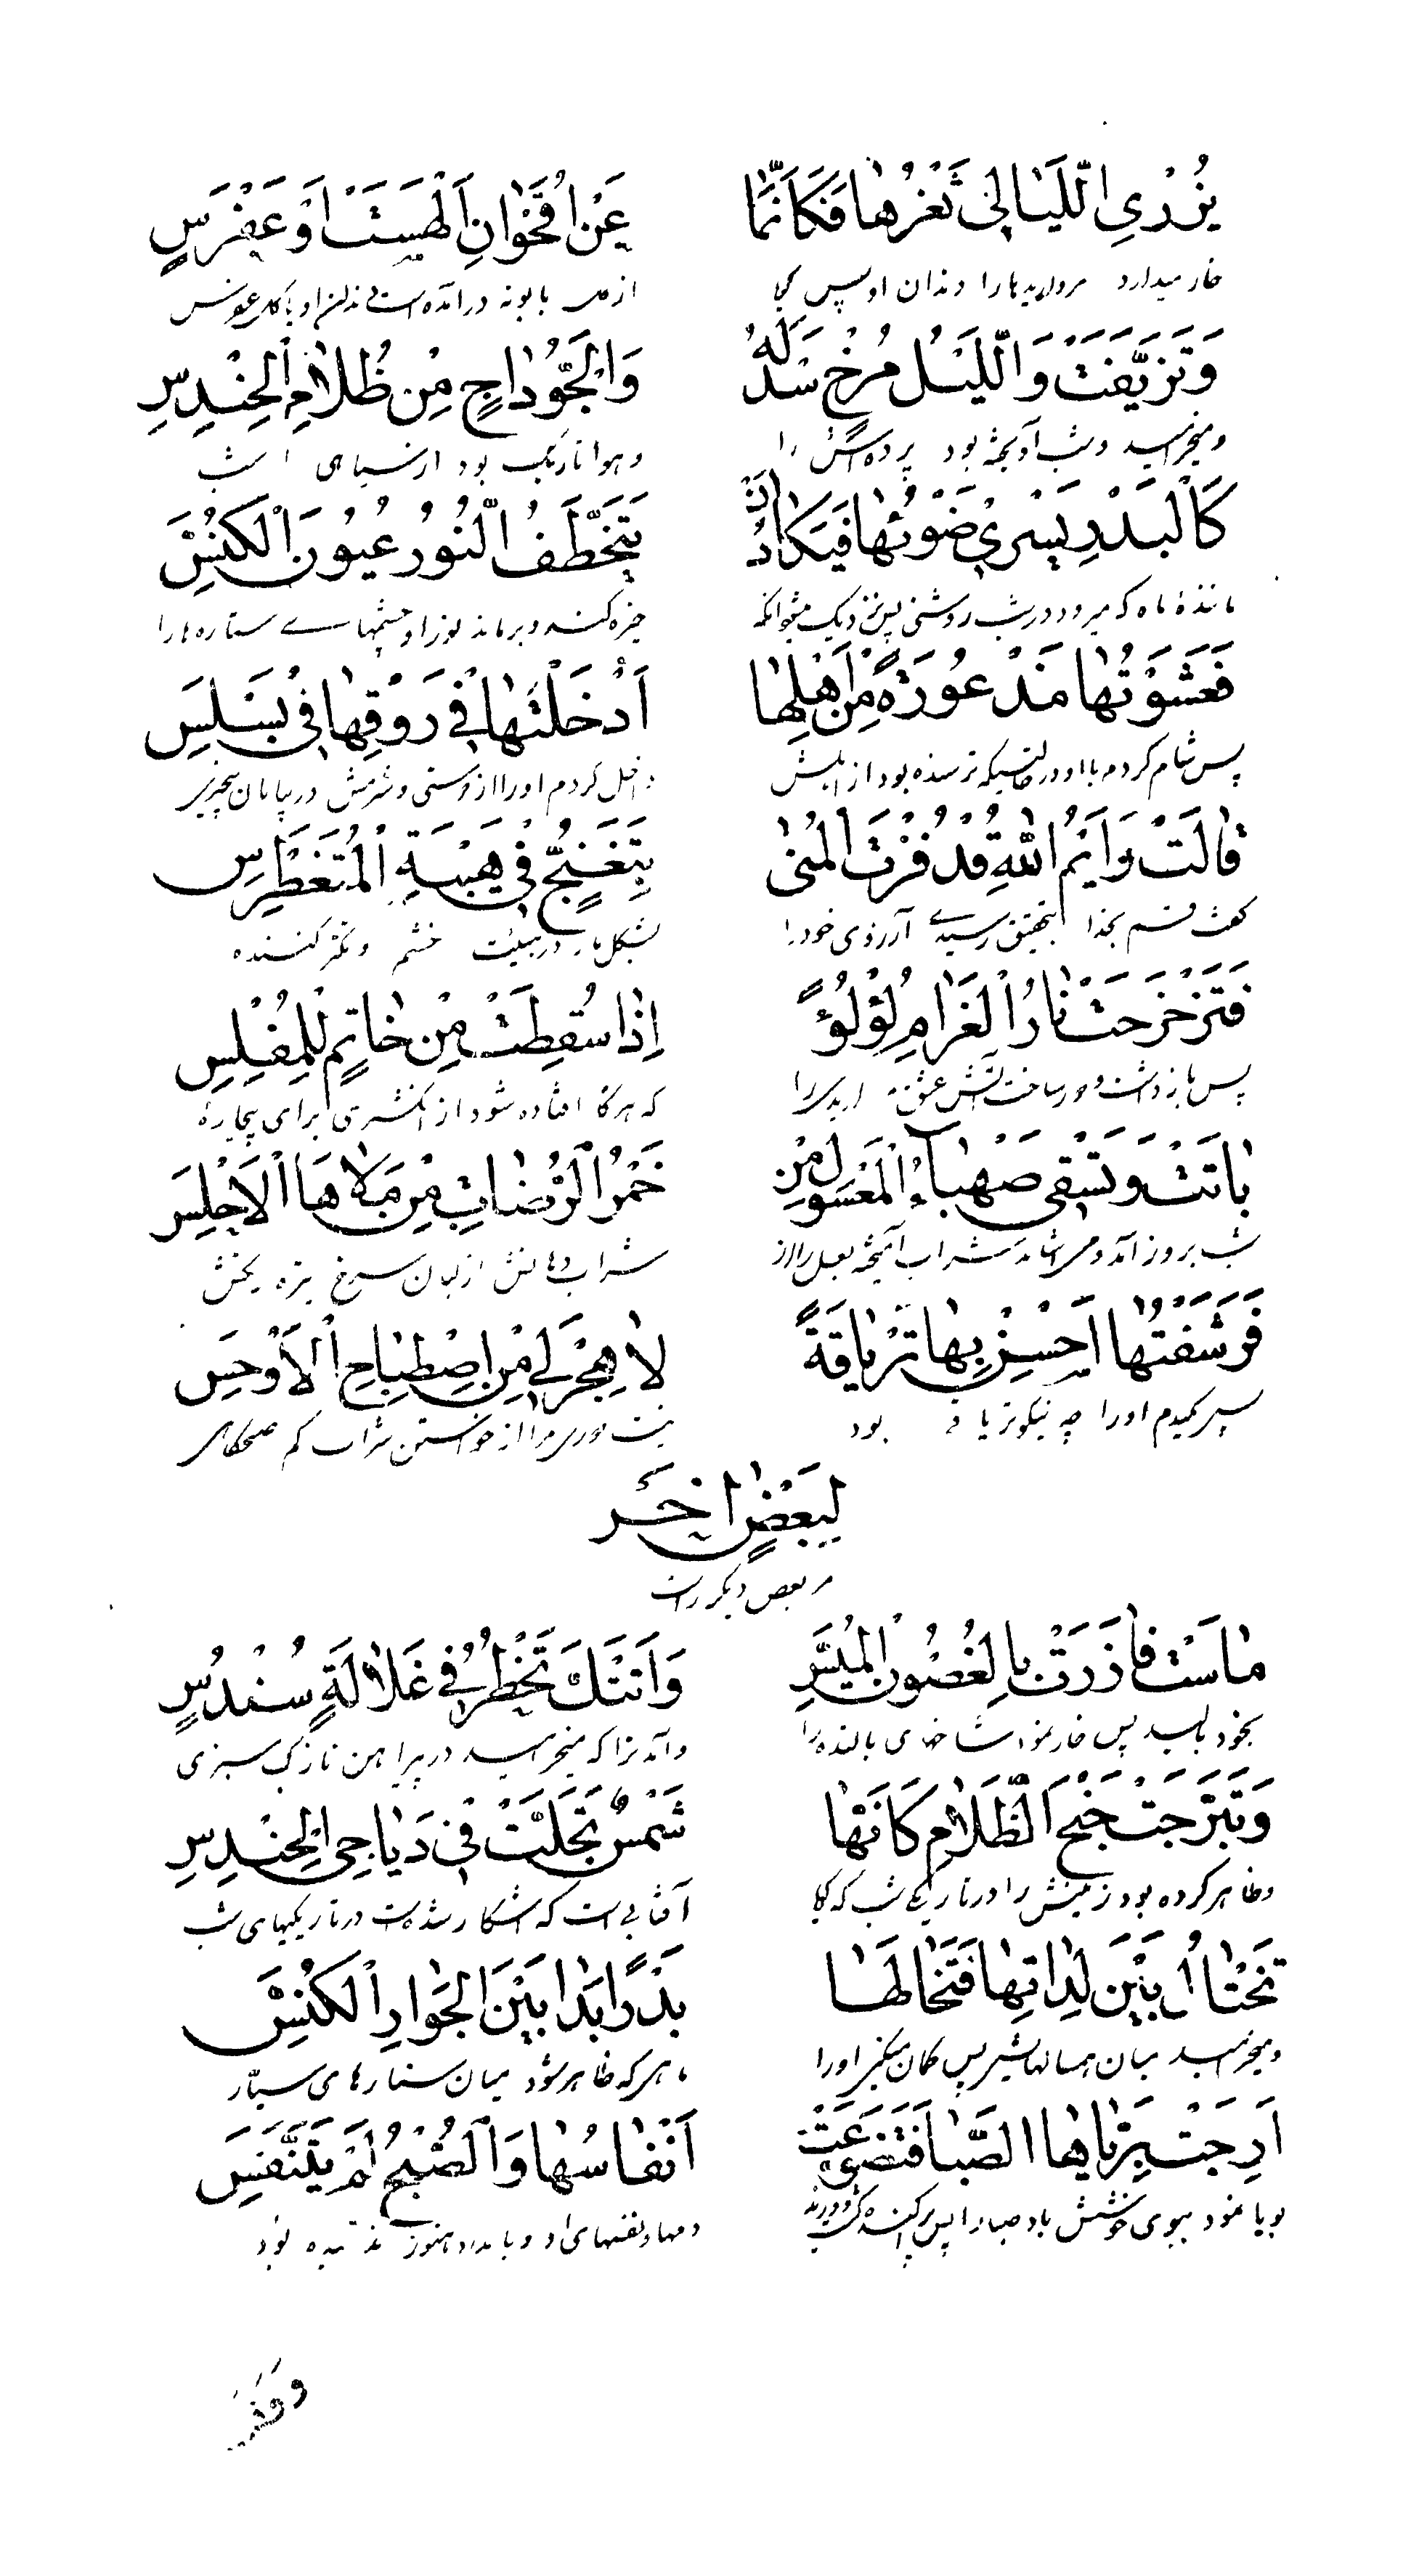 يُزْرِي اللَّيَالِيَ ثَغْرُهَا فَكَاَنَّمَا عَنْ اُقْحُوَانِ
خار میدارد مرواریدها را دندان او پس از بابونه درآمده است
وَتَزَيَّفَتْ وَاللَّيْلُ مُرْخٍ سَدْلَهُ وَالْجَوُّ دَاجٍ مِنْ ظَلَامِ الْحِنْدِسِ
ومیخرامید وشب آویخته بود پرده اش را وهوا تاریک بود از سیاهی شب
كَالْبَدْرِ يَسْرِيْ ضَوْئُهَا فَيَكَادُ اَنْ يَتَخَطَّفُ النُّوْرُ عُيُوْنَ الْكُنَّسِ
مانندهٔ ماه که میرود در شب روشنی خیره کند چشمهاے ستاره ها را
فَعَشَوْتُهَا مَذْعُوْرَةً مِنْ اَهْلِهَا اَدْخَلْتُهَا فِيْ رَوْقِهَا فِيْ بَسْلَسِ
پس شام کردم با او در حالتیکه ترسنده بود از اهلش داخل کردم او را از
قَالَتْ وَاَيْمُ اللهِ قَدْ فُزْتَ الْمُنٰى بِتَغَنُّجٍ فِيْ هَيْبَةِ الْمُتَغَطْرِسِ
گفت قسم بخدا بتحقیق رسیدے آرزوی خود را در هیئت خشم وتکبر کننده
فَتَزَحْزَحَتْ نَارُ الْغَرَامِ لُؤْلُؤً اِذَا سُقِطَتْ مِنْ خَاتِمٍ لِلْمُفْلِسِ
پس باز داشت ودور ساخت آتش عشق که هرگاه افتاده شود از انگشتری برای بیچارهٔ
بَاتَتْ وَتَسْقِي صَهْبَاءُ الْمَعْسُوْلِ مِنْ خَمْرُ الرُّضَابِ مِنْ
شب بروز آمد شراب آمیخته بعسل را از شراب دهانش از لبان سرخ
فَرَشَفْتُهَا اَحْسِنْ بِهَا تِرْيَاقَةً لَا هِجْرَ لِيْ مِنْ اصْطِبَاحِ
پس مکیدم او را چه نیکو بود نیست دوری مرا از خواستن شراب
لِبَعْضٍ اٰخَرَ
مر بعض دیگر راست
مَاسَتْ فَازَرَتْ بِالْغُصُوْنِ الْمُيَّسِ وَاَتَتْكَ تَخْطُرُ فِيْ غَلَالَةِ سُنْدُسٍ
بخود بالید پس خار نمود شاخهای بالنده را وآمد ترا که میخرامید در پیراهن نازک سبزی
وَتَبَرَّجَتْ جَنْحَ الظَّلَامِ كَاَنَّهَا شَمْسٌ تَجَلَّتْ فِيْ دَيَاجِي الْحِنْدِسِ
وظاهر کرده بود زینتش را در تاریکے شب که گویا آفتابے است که آشکار شده است در تاریکیهای شب
تَخْتَالُ بَيْنَ لِدَاتِهَا فَتَخَالُهَا بَدْرًا بَدَا بَيْنَ الْجَوَارِ الْكُنَّسِ
ومیخرامید میان همسالهایش پس گمان میکنی او را ماهی که ظاهر شود میان ستارهای سیّار
اَرِجَتْ بِرَيَّاهَا الصَّبَا فَتَضَوَّعَتْ اَنْفَاسُهَا وَالصُّبْحُ لَمْ يَتَنَفَّسِ
بویا نمود ببوی خوشش باد صبا را پس نفسهای او وبامداد هنوز